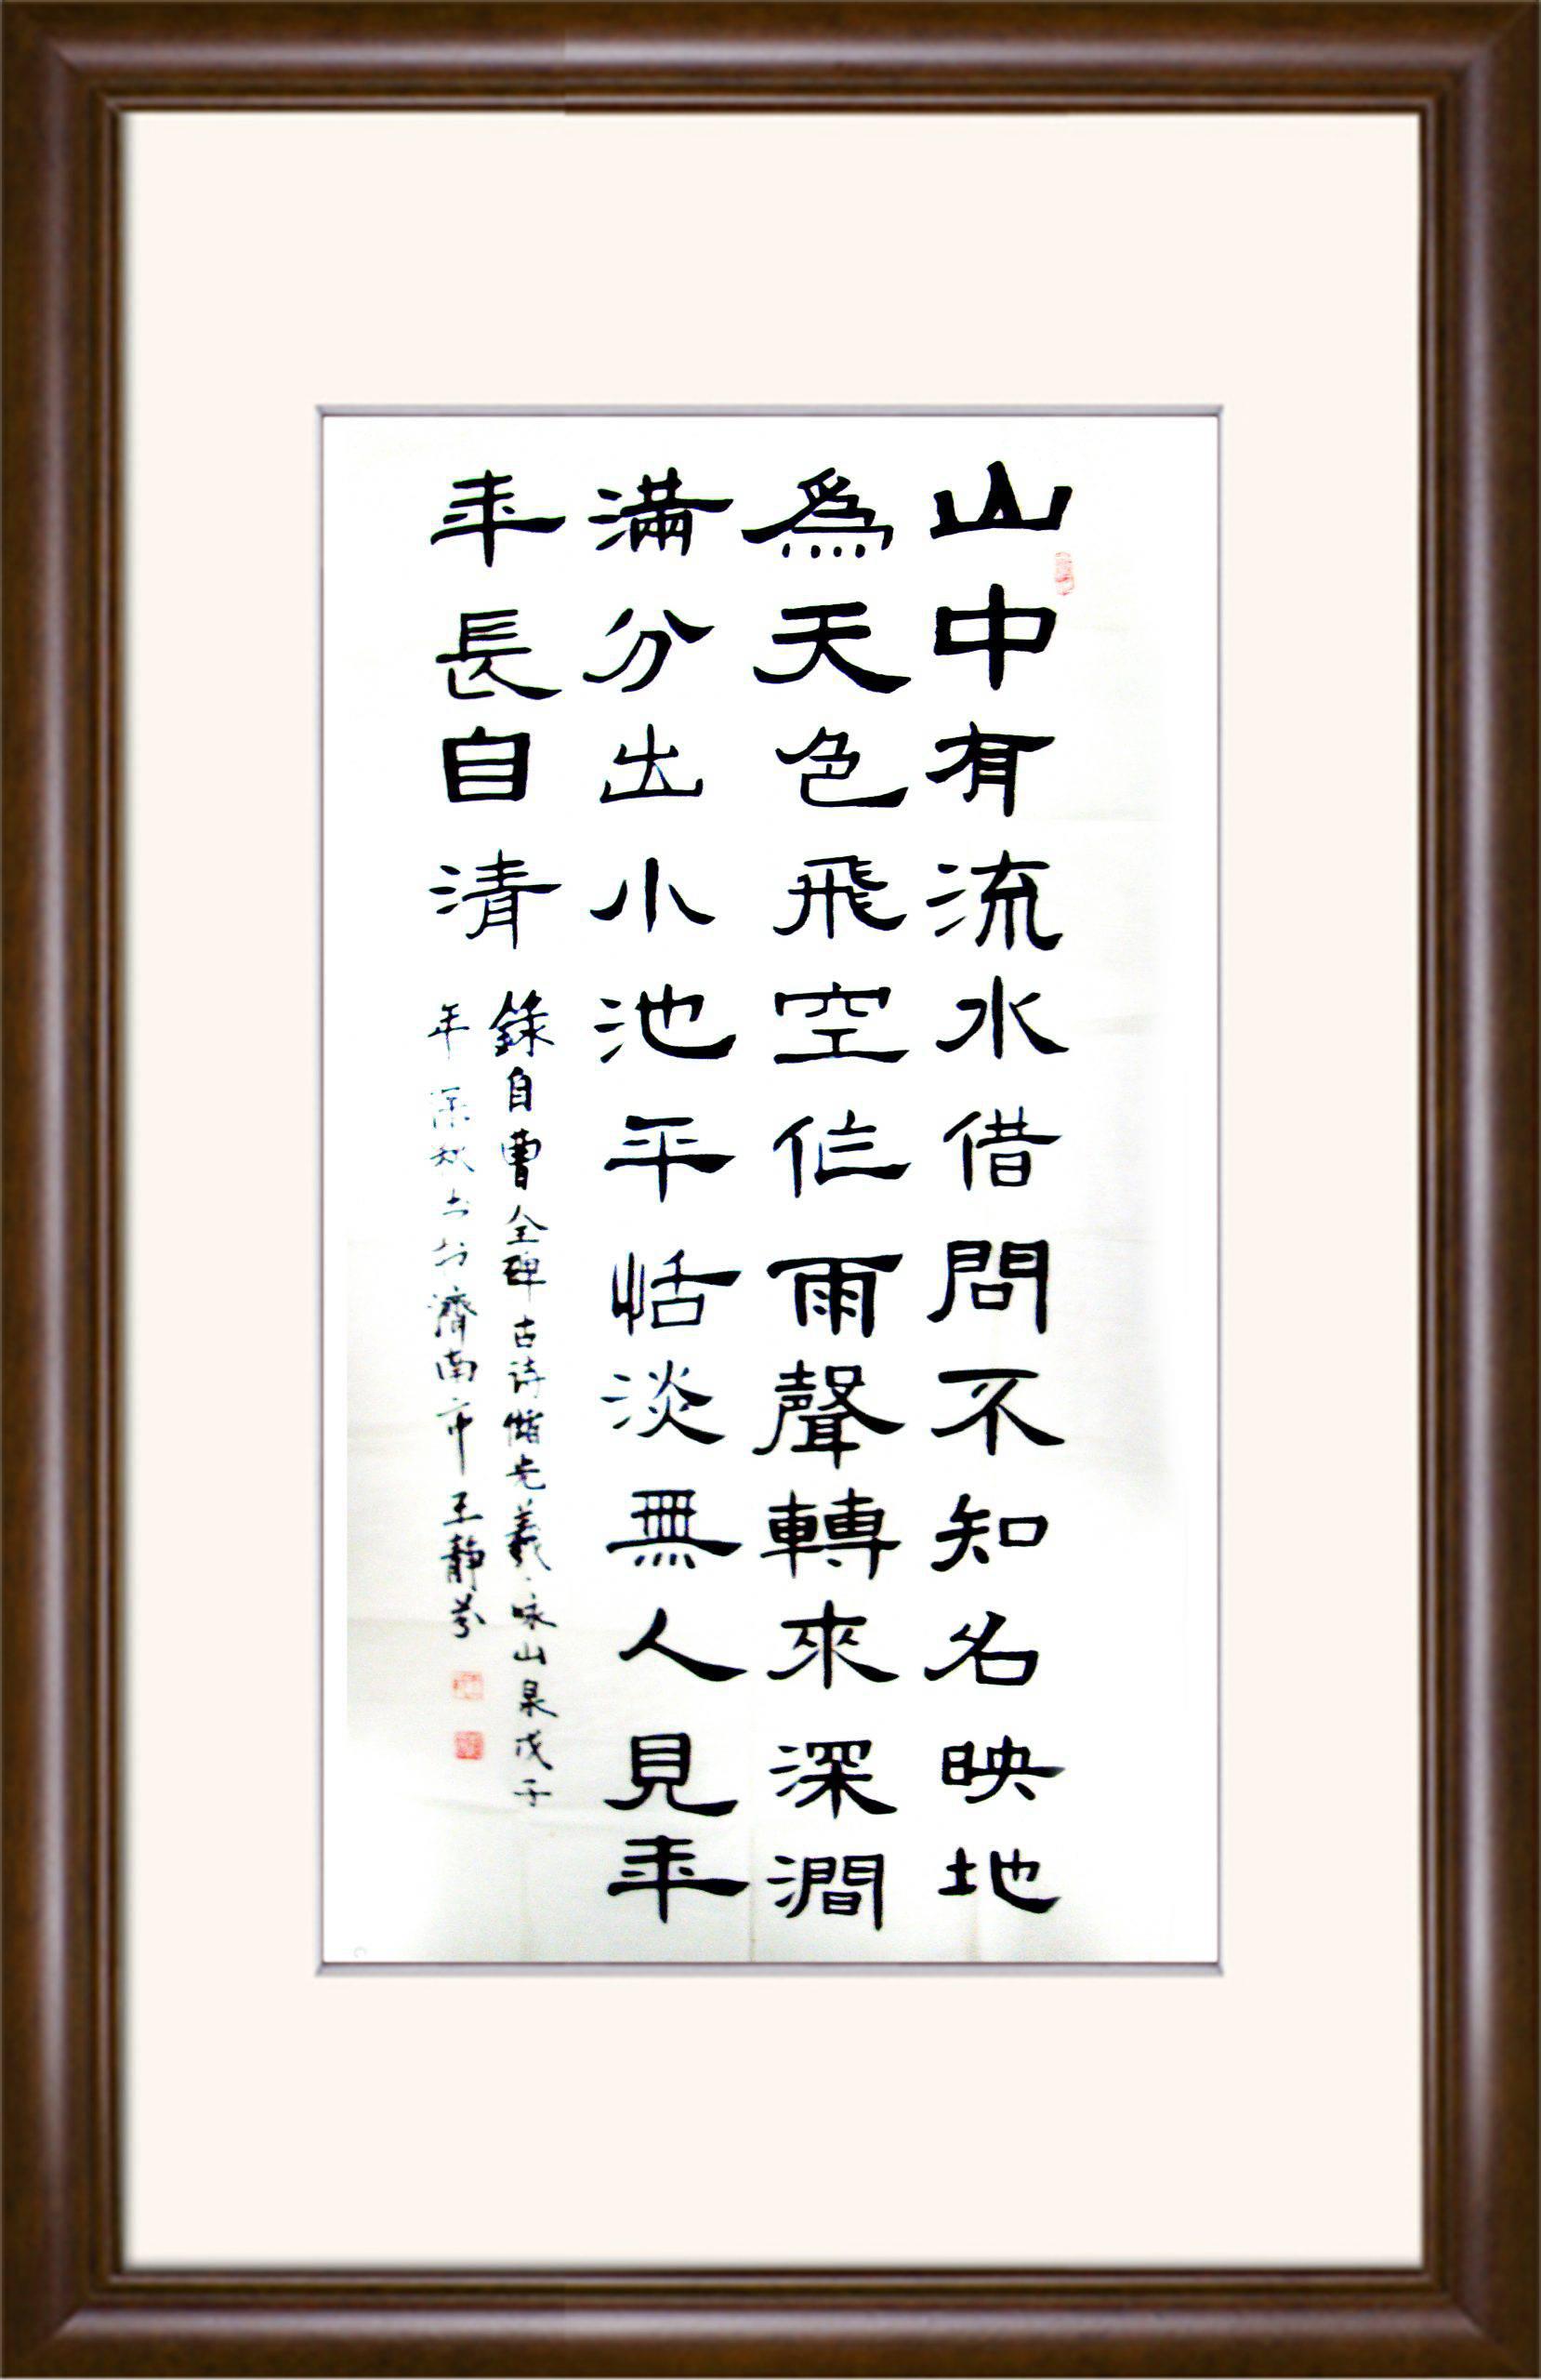 山中有流水借問不知名映地
為天色飛空作雨聲轉來深澗
滿分出小池平恬淡無人見年
年長自清
錄自曹全碑古诗儲光羲·咏山泉戊子
年深秋书於濟南市王静芬